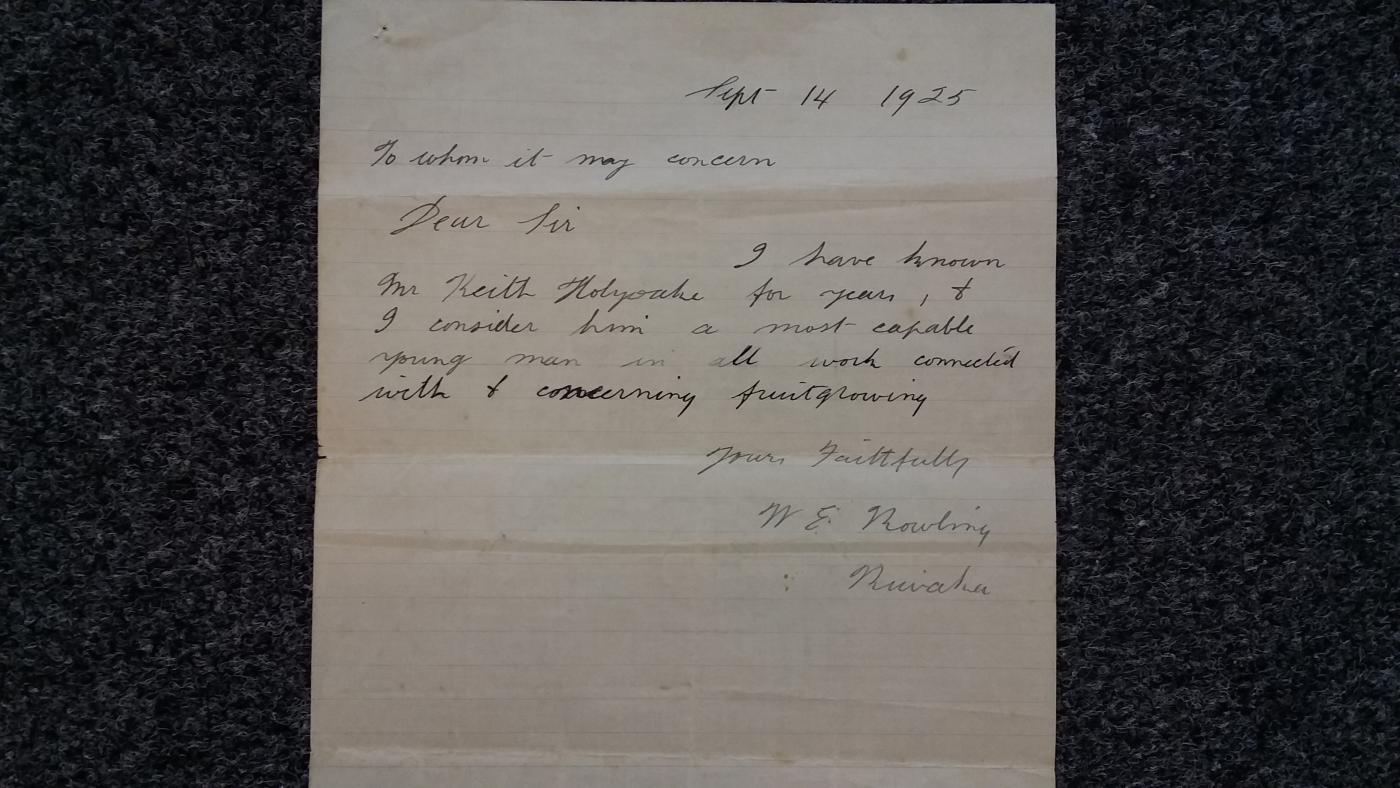 Sept 14 1925
To whom it may concern
Dear Sir
I have known
Mr Keith Holyoake for years, &
I consider him a most capable
young man in all work connected
with & concerning fruitgrowing
Yours Faithfully
W E. Rowling
Riwaka